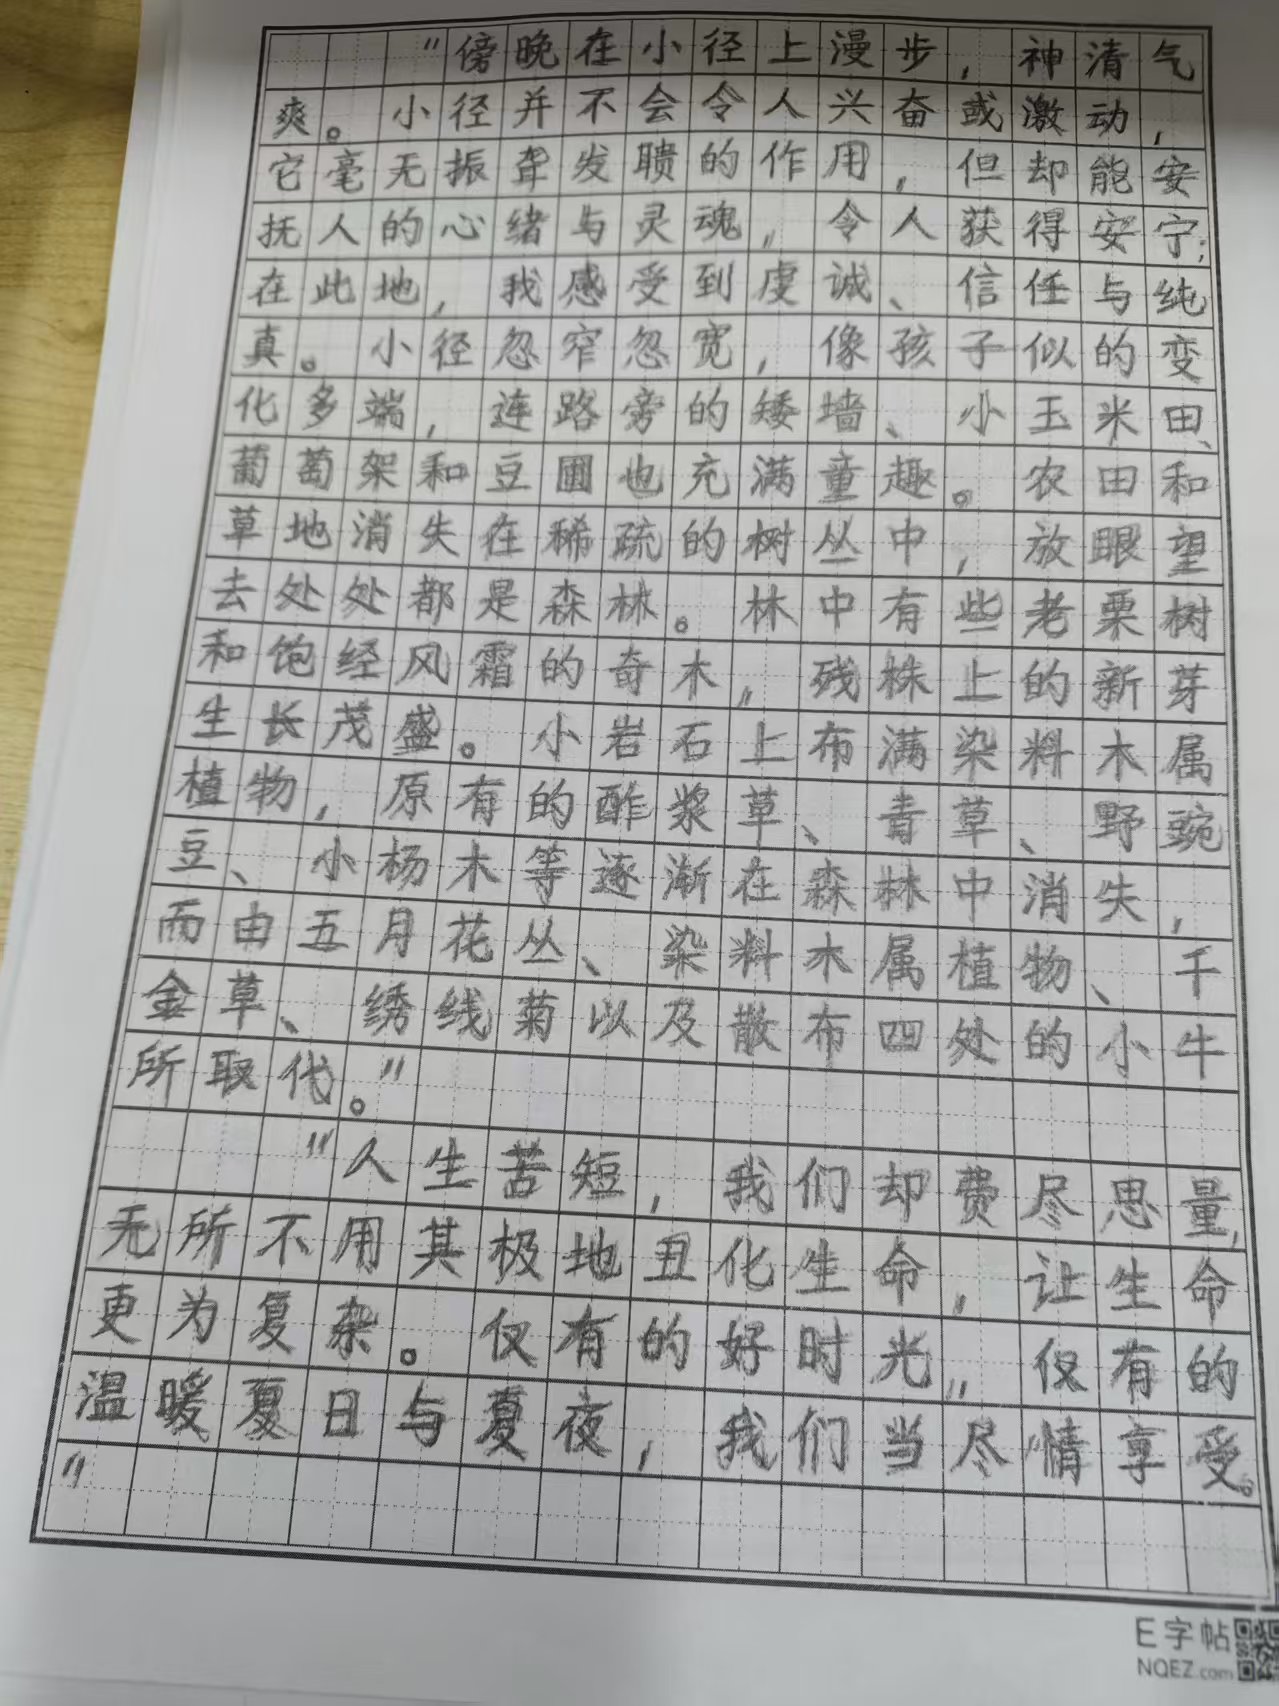 “傍晚在小径上漫步，神清气
爽。小径并不会令人兴奋或激动，
它毫无振聋发聩的作用，但却能安
抚人的心绪与灵魂，令人获得安宁；
在此地，我感受到虔诚、信任与纯
真。小径忽窄忽宽，像孩子似的变
化多端，连路旁的矮墙、小玉米田、
葡萄架和豆圃也充满童趣。农田和
草地消失在稀疏的树丛中，放眼望
去处处都是森林。林中有些老栗树
和饱经风霜的奇木，残株上的新芽
生长茂盛。小岩石上布满染料木属
植物，原有的酢浆草、青草、野豌
豆、小杨木等逐渐在森林中消失，
而由五月花丛、染料木属植物、千
金草、绣线菊以及散布四处的小牛
所取代。”
“人生苦短，我们却费尽思量，
无所不用其极地丑化生命，让生命
更为复杂。仅有的好时光，仅有的
温暖夏日与夏夜，我们当尽情享受。
”
E字帖
NQEZ.com